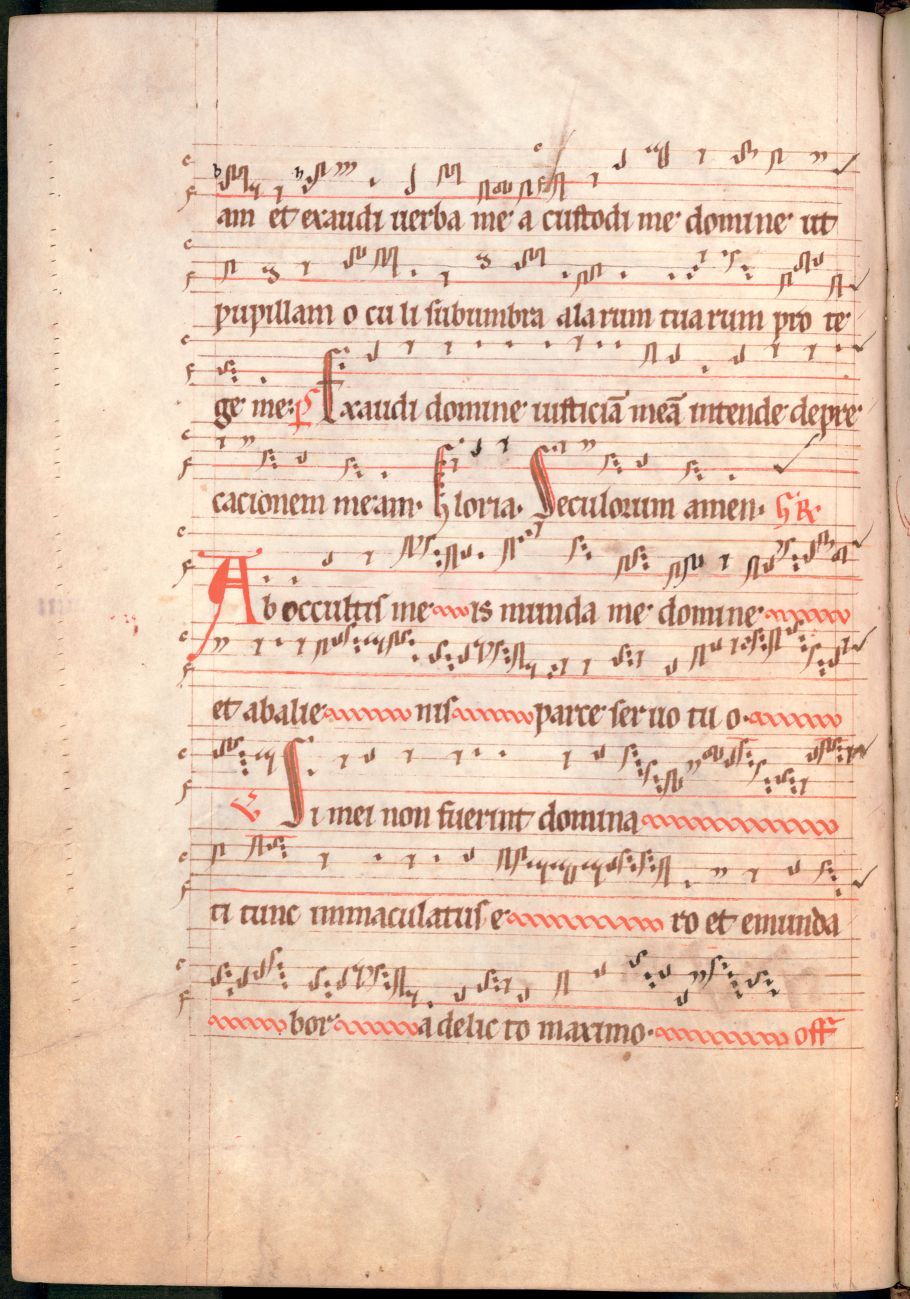 am et exaudi uerba me a custodi me domine ut
pupillam o cu li subumbra alarum tuarum pro te
ge me. ps Exaudi domine iusticiā meā intende depre
cacionem meam. Gloria. Seculorum amen. Gr
Ab occultis me is munda me domine
et abalie nis parce seruo tu o.
V Si mei non fuerint domina
ti tunc inmaculatus e ro et emunda
bor a delic to maximo. off